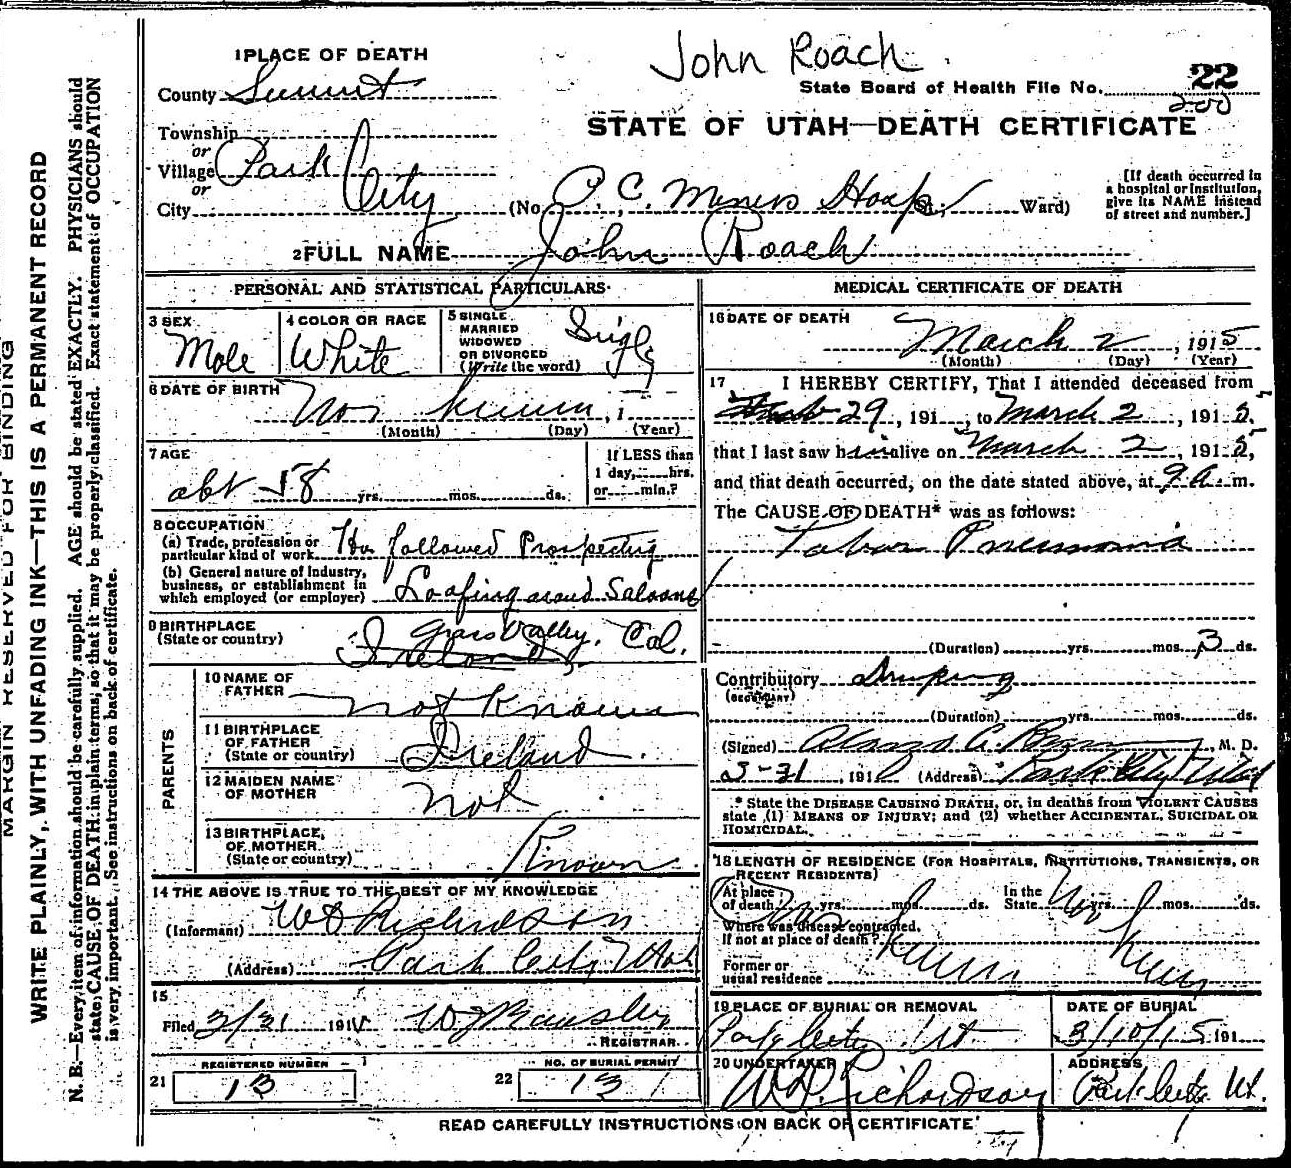 John Roach
1 PLACE OF DEATH
State Board of Health File No. 22
200
County Summit
STATE OF UTAH—DEATH CERTIFICATE
Township
or
Village Park City
or
City (No. P. C. Miners Hosp. Ward)
[If death occurred in a hospital or institution, give its NAME instead of street and number.]
2 FULL NAME John Roach
PERSONAL AND STATISTICAL PARTICULARS
3 SEX Male
4 COLOR OR RACE White
5 SINGLE MARRIED WIDOWED OR DIVORCED (Write the word) Single
6 DATE OF BIRTH Not known, 1
(Month) (Day) (Year)
7 AGE abt 58 yrs. mos. ds.
If LESS than 1 day, hrs. or min.?
8 OCCUPATION
(a) Trade, profession or particular kind of work Has followed Prospecting
(b) General nature of Industry, business, or establishment in which employed (or employer) Loafing around Saloons
9 BIRTHPLACE (State or country) Ireland Grass Valley, Cal.
PARENTS
10 NAME OF FATHER not Known
11 BIRTHPLACE OF FATHER (State or country) Ireland
12 MAIDEN NAME OF MOTHER Not
13 BIRTHPLACE OF MOTHER (State or country) Known
14 THE ABOVE IS TRUE TO THE BEST OF MY KNOWLEDGE
(Informant) W D Richardson
(Address) Park City Utah
15
Filed 3/31 191
REGISTRAR.
REGISTERED NUMBER
21 13
NO. OF BURIAL PERMIT
22 13
MEDICAL CERTIFICATE OF DEATH
16 DATE OF DEATH
March 2, 1915
(Month) (Day) (Year)
17 I HEREBY CERTIFY, That I attended deceased from
29, 191 , to March 2, 1915,
that I last saw him alive on March 2, 1915,
and that death occurred, on the date stated above, at 9 a. m.
The CAUSE OF DEATH* was as follows:
Lobar Pneumonia
(Duration) yrs. mos. 3 ds.
Contributory
(SECONDARY)
(Duration) yrs. mos. ds.
(Signed) Alonzo C. M. D.
3-31, 191 (Address) Park City Utah
* State the DISEASE CAUSING DEATH, or, in deaths from VIOLENT CAUSES state (1) MEANS OF INJURY; and (2) whether ACCIDENTAL, SUICIDAL OR HOMICIDAL.
18 LENGTH OF RESIDENCE (FOR HOSPITALS, INSTITUTIONS, TRANSIENTS, OR RECENT RESIDENTS)
At place of death yrs. mos. ds. In the State yrs. mos. ds.
Where was disease contracted, If not at place of death?
Former or usual residence
19 PLACE OF BURIAL OR REMOVAL Park City Ut
DATE OF BURIAL 3/10/15 191
20 UNDERTAKER W D. Richardson
ADDRESS Park City Ut.
READ CAREFULLY INSTRUCTIONS ON BACK OF CERTIFICATE
MARGIN RESERVED FOR BINDING
WRITE PLAINLY, WITH UNFADING INK—THIS IS A PERMANENT RECORD
N. B.—Every item of information should be carefully supplied. AGE should be stated EXACTLY. PHYSICIANS should
state CAUSE OF DEATH in plain terms, so that it may be properly classified. Exact statement of OCCUPATION
is very important. See instructions on back of certificate.